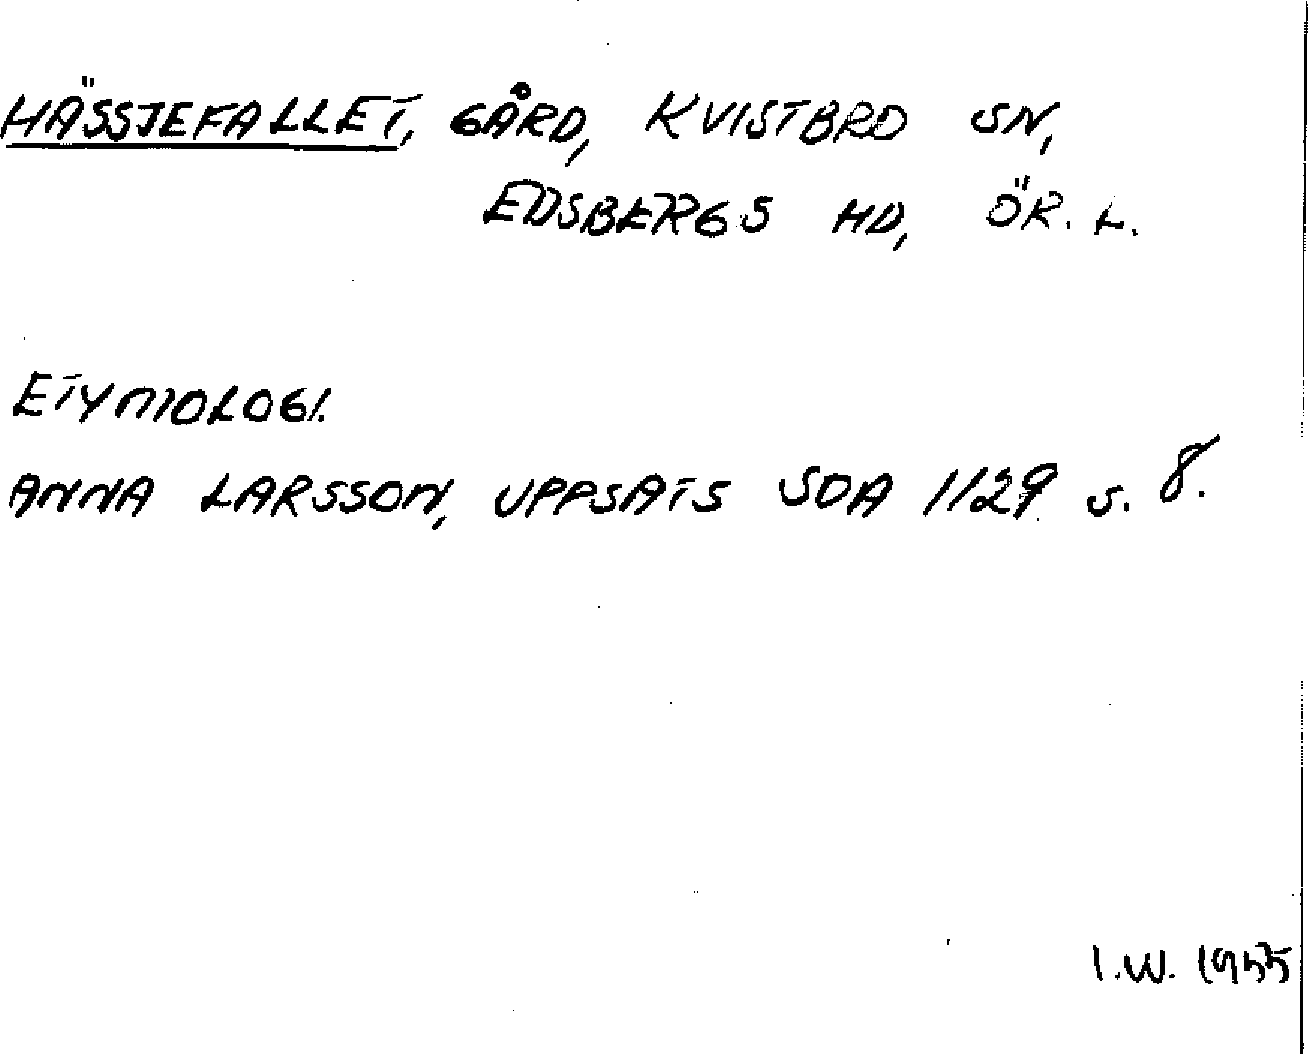 HÄSSJEFALLET, GÅRD, KVISTBRO SN,
EDSBERGS HD, ÖR. L.
ETYMOLOGI.
ANNA LARSSON, UPPSATS SOA 1129 s. 8.
I.W. 1955